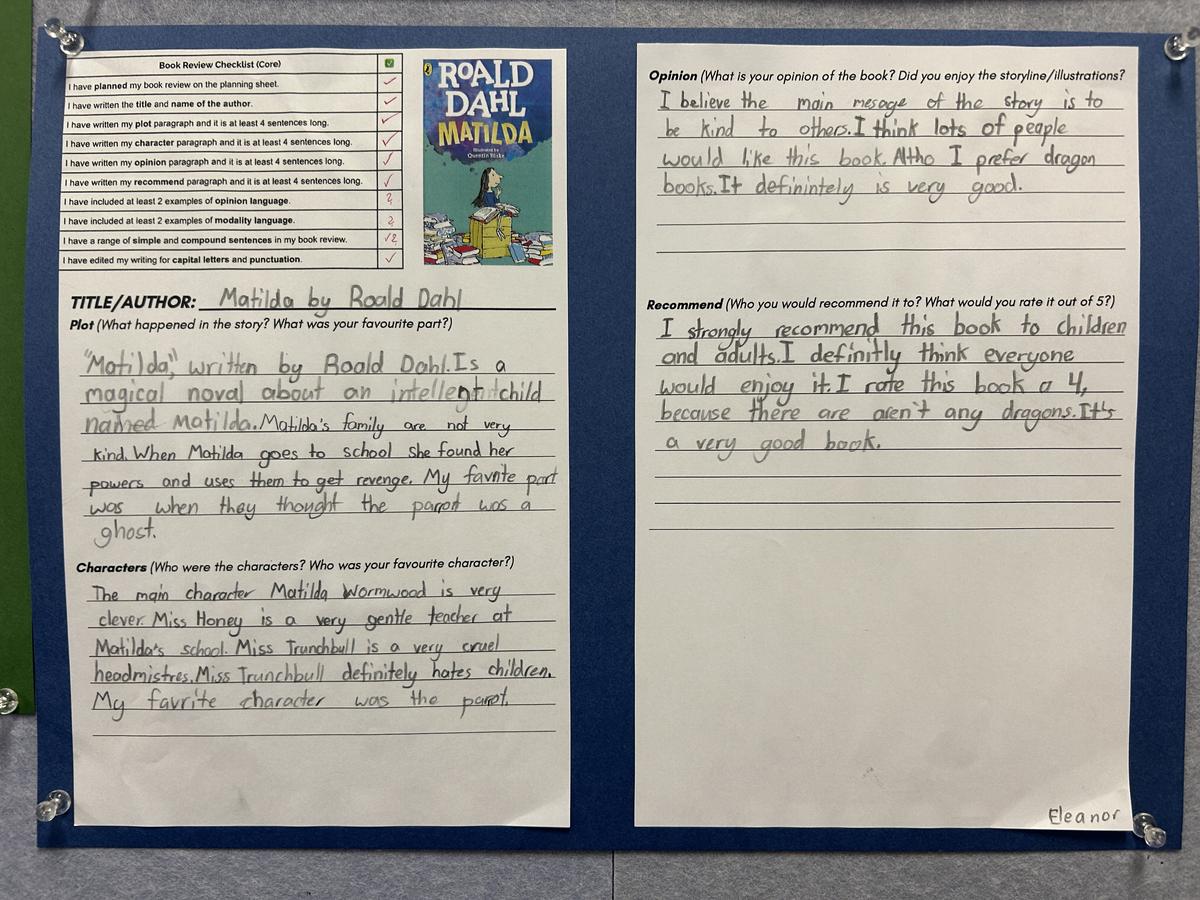 Book Review Checklist (Core)
I have planned my book review on the planning sheet.
I have written the title and name of the author.
I have written my plot paragraph and it is at least 4 sentences long.
I have written my character paragraph and it is at least 4 sentences long.
I have written my opinion paragraph and it is at least 4 sentences long.
I have written my recommend paragraph and it is at least 4 sentences long.
I have included at least 2 examples of opinion language. 2
I have included at least 2 examples of modality language. 2
I have a range of simple and compound sentences in my book review. ✓2
I have edited my writing for capital letters and punctuation.
ROALD
DAHL
MATILDA
Illustrated by
Quentin Blake
TITLE/AUTHOR: Matilda by Roald Dahl
Plot (What happened in the story? What was your favourite part?)
"Matilda," written by Roald Dahl. Is a
magical noval about an intellent child
named Matilda. Matilda's family are not very
kind. When Matilda goes to school she found her
powers and uses them to get revenge. My favrite part
was when they thought the parrot was a
ghost.
Characters (Who were the characters? Who was your favourite character?)
The main character Matilda Wormwood is very
clever. Miss Honey is a very gentle teacher at
Matilda's school. Miss Trunchbull is a very cruel
headmistres. Miss Trunchbull definitely hates children.
My favrite character was the parrot.
Opinion (What is your opinion of the book? Did you enjoy the storyline/illustrations?
I believe the main mesage of the story is to
be kind to others. I think lots of peaple
would like this book. Altho I prefer dragon
books. It definintely is very good.
Recommend (Who you would recommend it to? What would you rate it out of 5?)
I strongly recommend this book to children
and adults. I definitly think everyone
would enjoy it. I rate this book a 4,
because there are aren't any dragons. It's
a very good book.
Eleanor